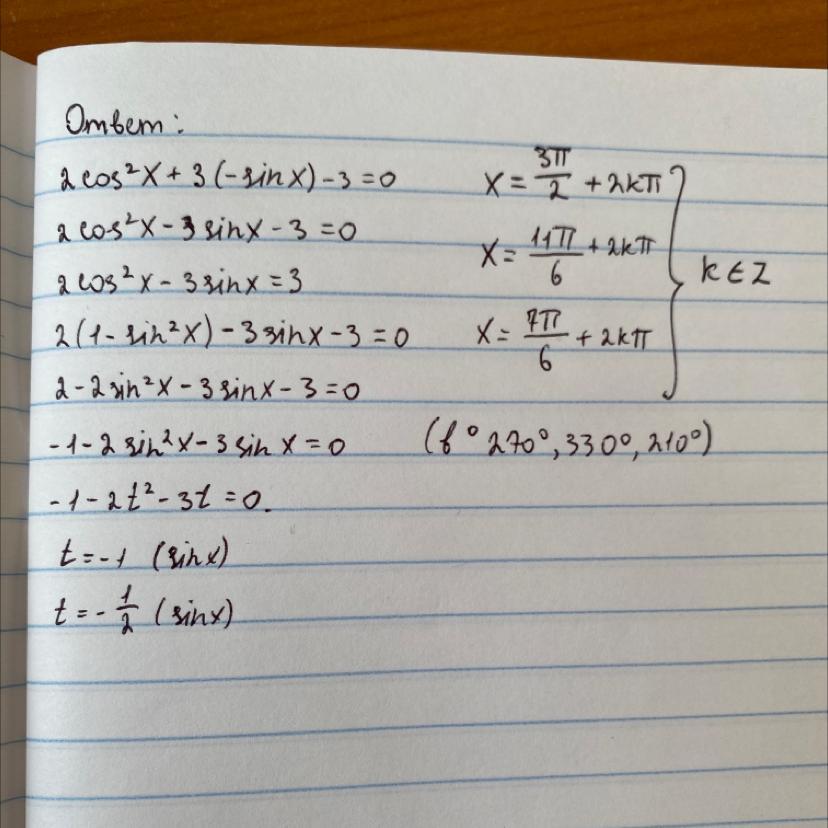 Ответ:
2cos²x + 3(-sinx) - 3 = 0
2cos²x - 3sinx - 3 = 0
2cos²x - 3sinx = 3
2(1 - sin²x) - 3sinx - 3 = 0
2 - 2sin²x - 3sinx - 3 = 0
-1 - 2sin²x - 3sinx = 0
-1 - 2t² - 3t = 0.
t = -1 (sinx)
t = -1/2 (sinx)
x = 3π/2 + 2kπ
x = 11π/6 + 2kπ
x = 7π/6 + 2kπ
k ∈ Z
(в ° 270°, 330°, 210°)